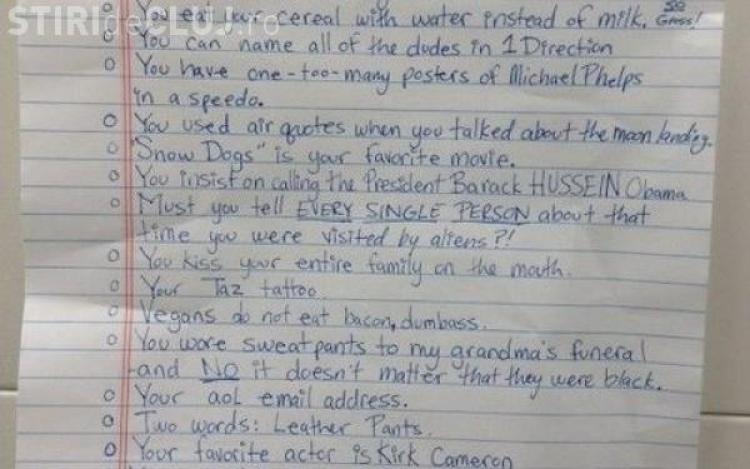 You eat your cereal with water instead of milk. SO Gross!
STIRIdeCLUJ.ro
You can name all of the dudes in 1 Direction
You have one-too-many posters of Michael Phelps
in a speedo.
You used air quotes when you talked about the moon landing.
"Snow Dogs" is your favorite movie.
You insist on calling the President Barack HUSSEIN Obama
Must you tell EVERY SINGLE PERSON about that
time you were visited by aliens?!
You kiss your entire family on the mouth.
Your Taz tattoo.
Vegans do not eat bacon, dumbass.
You wore sweatpants to my grandma's funeral
-and NO it doesn't matter that they were black.
Your aol email address.
Two words: Leather Pants.
Your favorite actor is Kirk Cameron